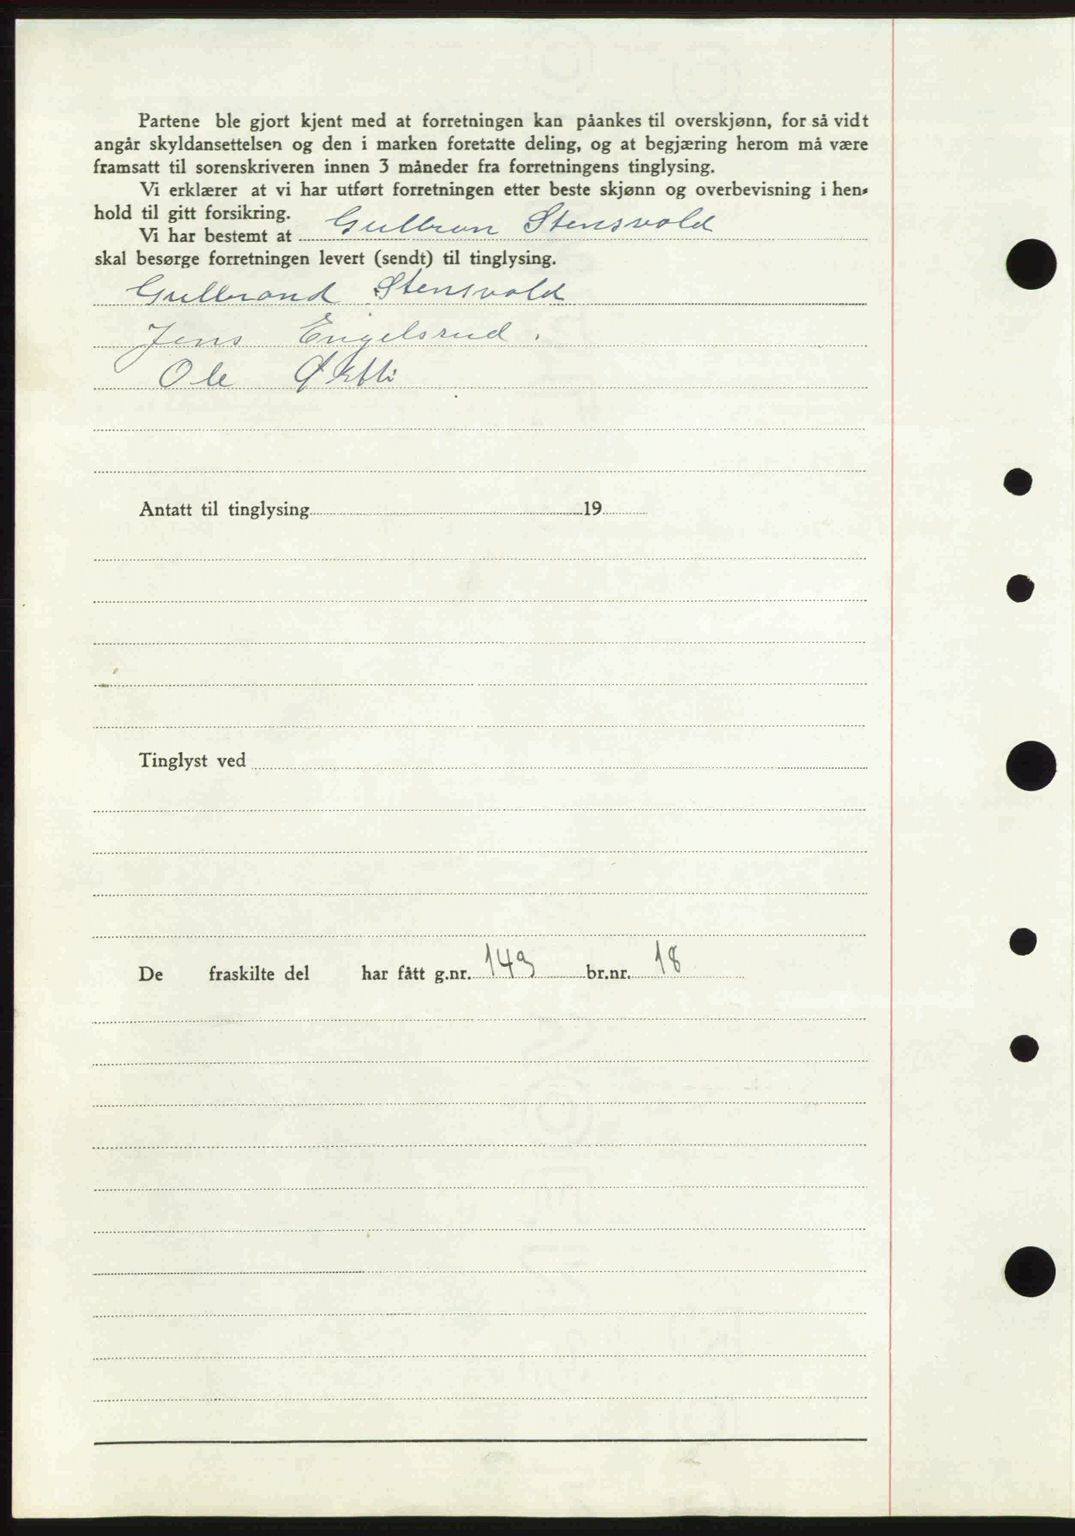 Partene ble gjort kjent med at forretningen kan påankes til overskjønn, for så vidt
angår skyldansettelsen og den i marken foretatte deling, og at begjæring herom må være
framsatt til sorenskriveren innen 3 måneder fra forretningens tinglysing.
Vi erklærer at vi har utført forretningen etter beste skjønn og overbevisning i hen-
hold til gitt forsikring.
Vi har bestemt at Gullbran Stensvold
skal besørge forretningen levert (sendt) til tinglysing.
Gullbrand Stensvold
Jens Engelsrud.
Ole
Antatt til tinglysing 19
Tinglyst ved
De fraskilte del har fått g.nr. 149 br.nr. 18